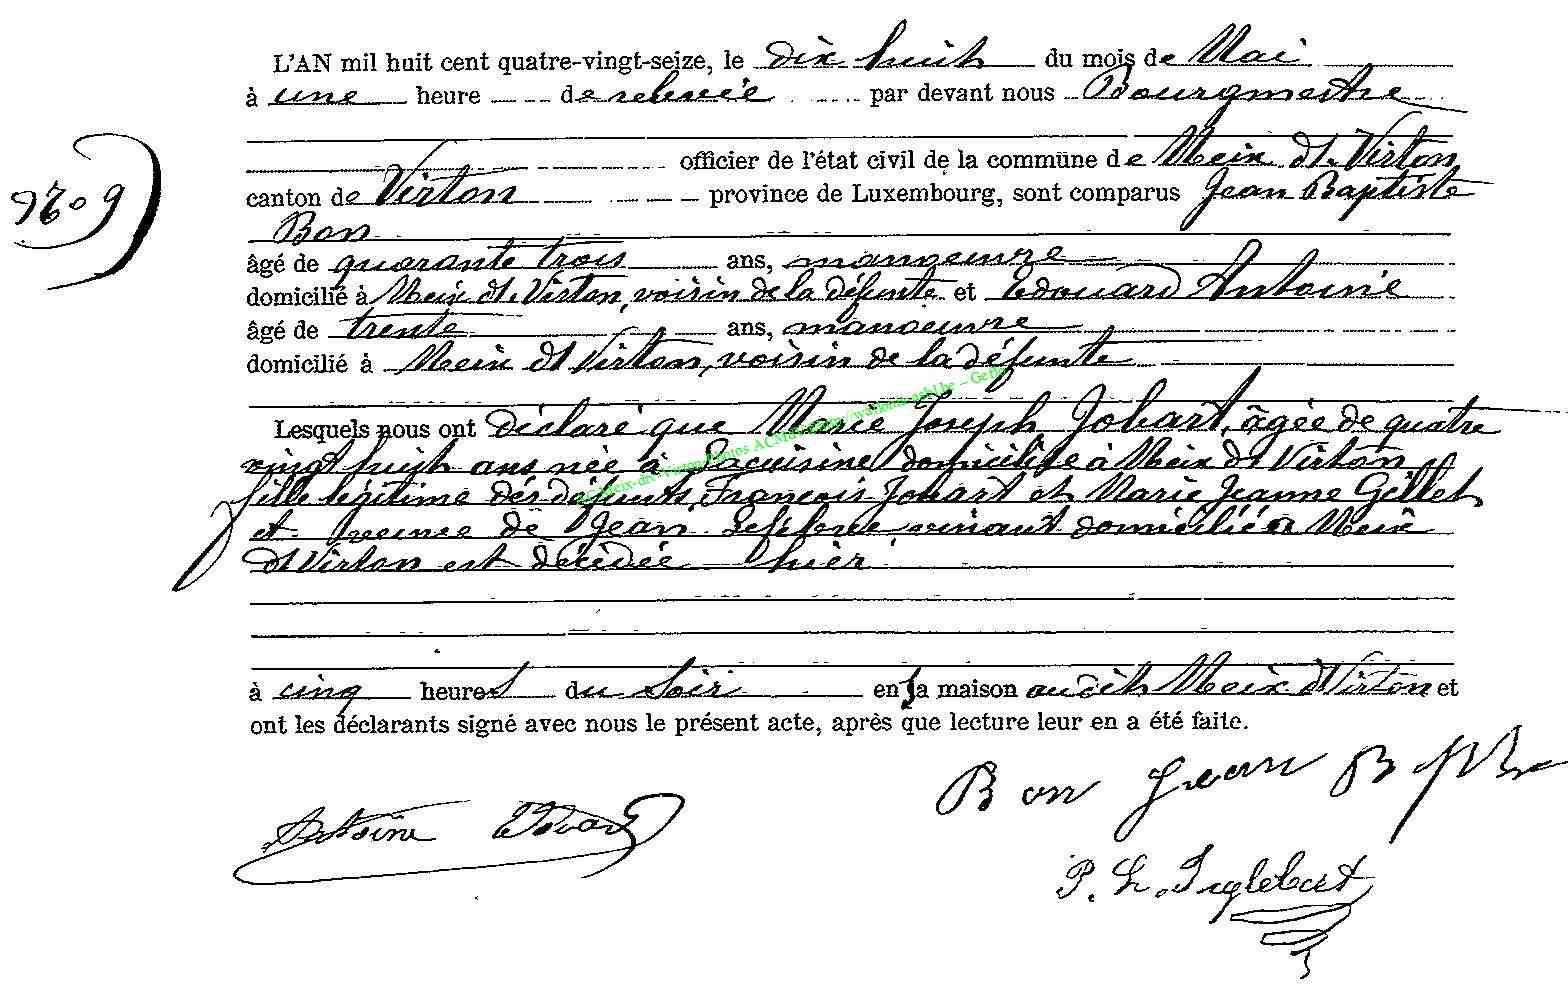 L'AN mil huit cent quatre-vingt-seize, le dix huit du mois de Mai
à une heure de relevée par devant nous Bourgmestre
officier de l'état civil de la commune de Meix dt. Virton
canton de Virton province de Luxembourg, sont comparus Jean Baptiste
Bon
âgé de quarante trois ans, manoeuvre
domicilié à Meix dt. Virton, voisin de la défunte et Edouard Antoine
âgé de trente ans, manoeuvre
domicilié à Meix dt Virton, voisin de la défunte
Lesquels nous ont déclaré que Marie Joseph Jobart, âgée de quatre
vingt huit ans née à Lacuisine domiciliée à Meix dt Virton
fille légitime des défunts, François Jobart et Marie Jeanne Gillet
et veuve de Jean Lefebvre vivant domicilié à Meix
dt Virton est décédée hier
à cinq heures du soir en sa maison audit Meix dt Virton et
ont les déclarants signé avec nous le présent acte, après que lecture leur en a été faite.
Bon Jean B
Antoine Edouard